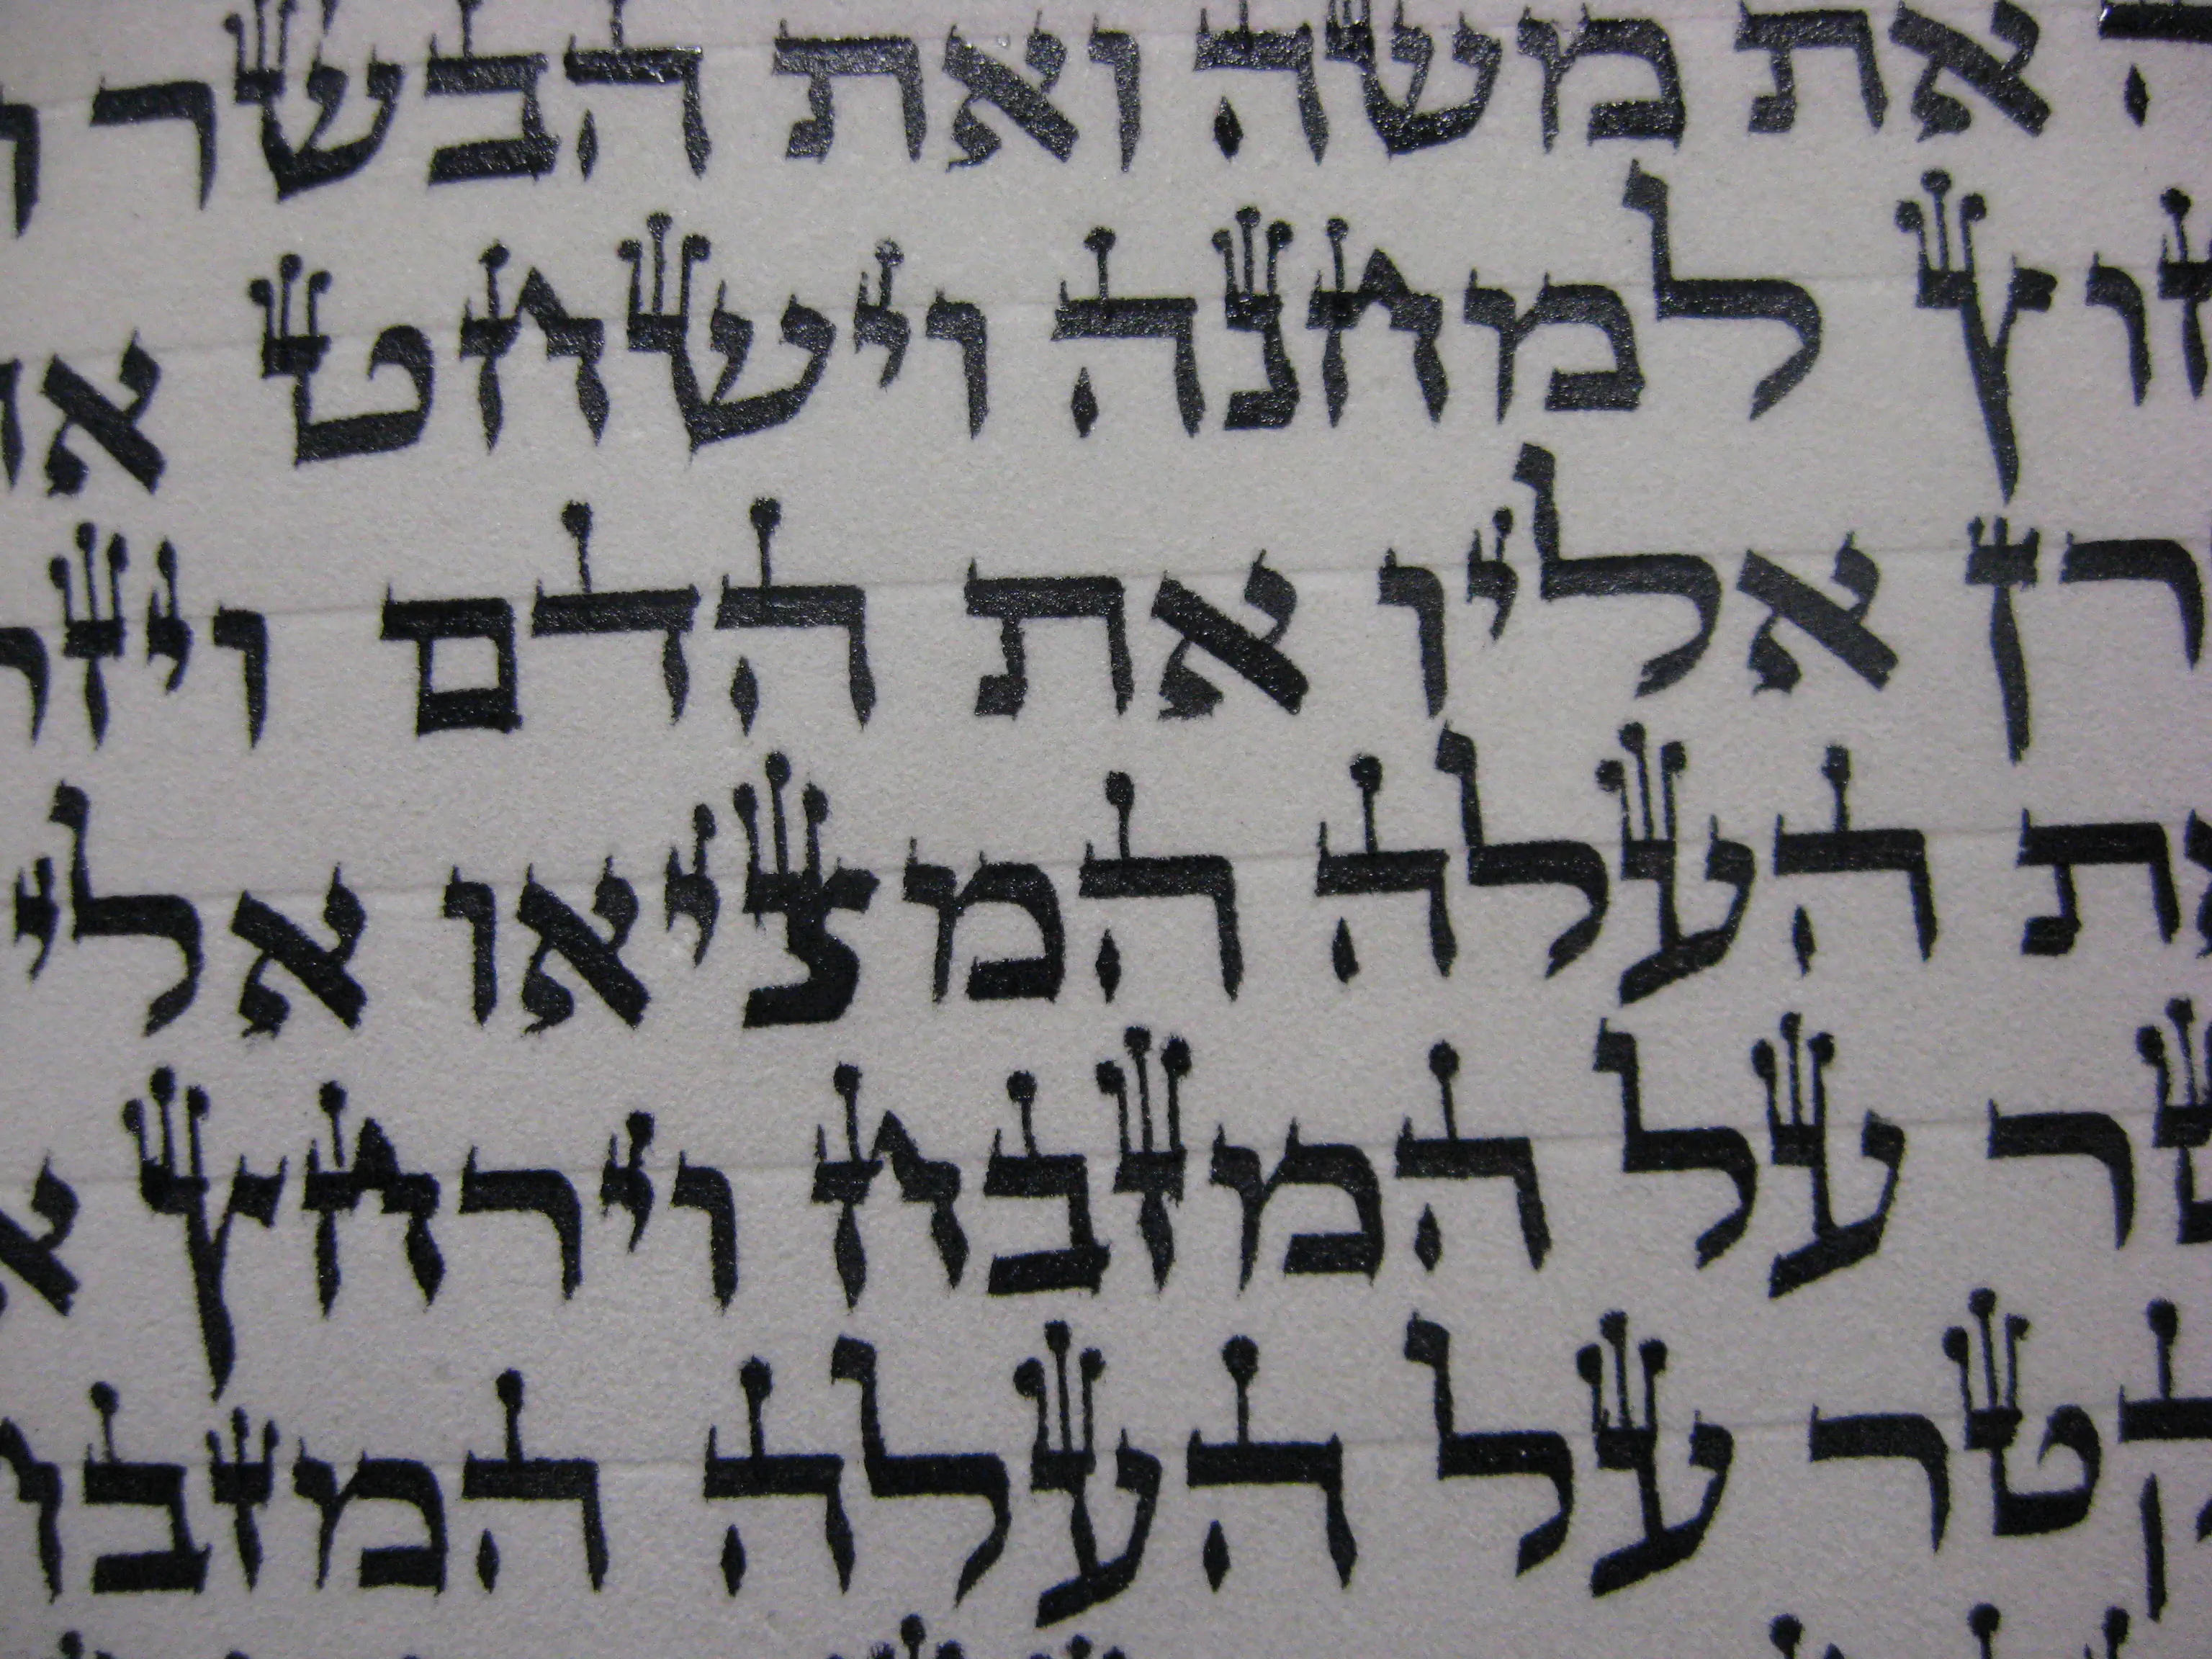 ה את משה ואת הבשר ו
חוץ למחנה וישחט את
רן אליו את הדם ויזר
את העלה המציאו אלי
טר על המזבח וירחץ א
קטר על העלה המזבח